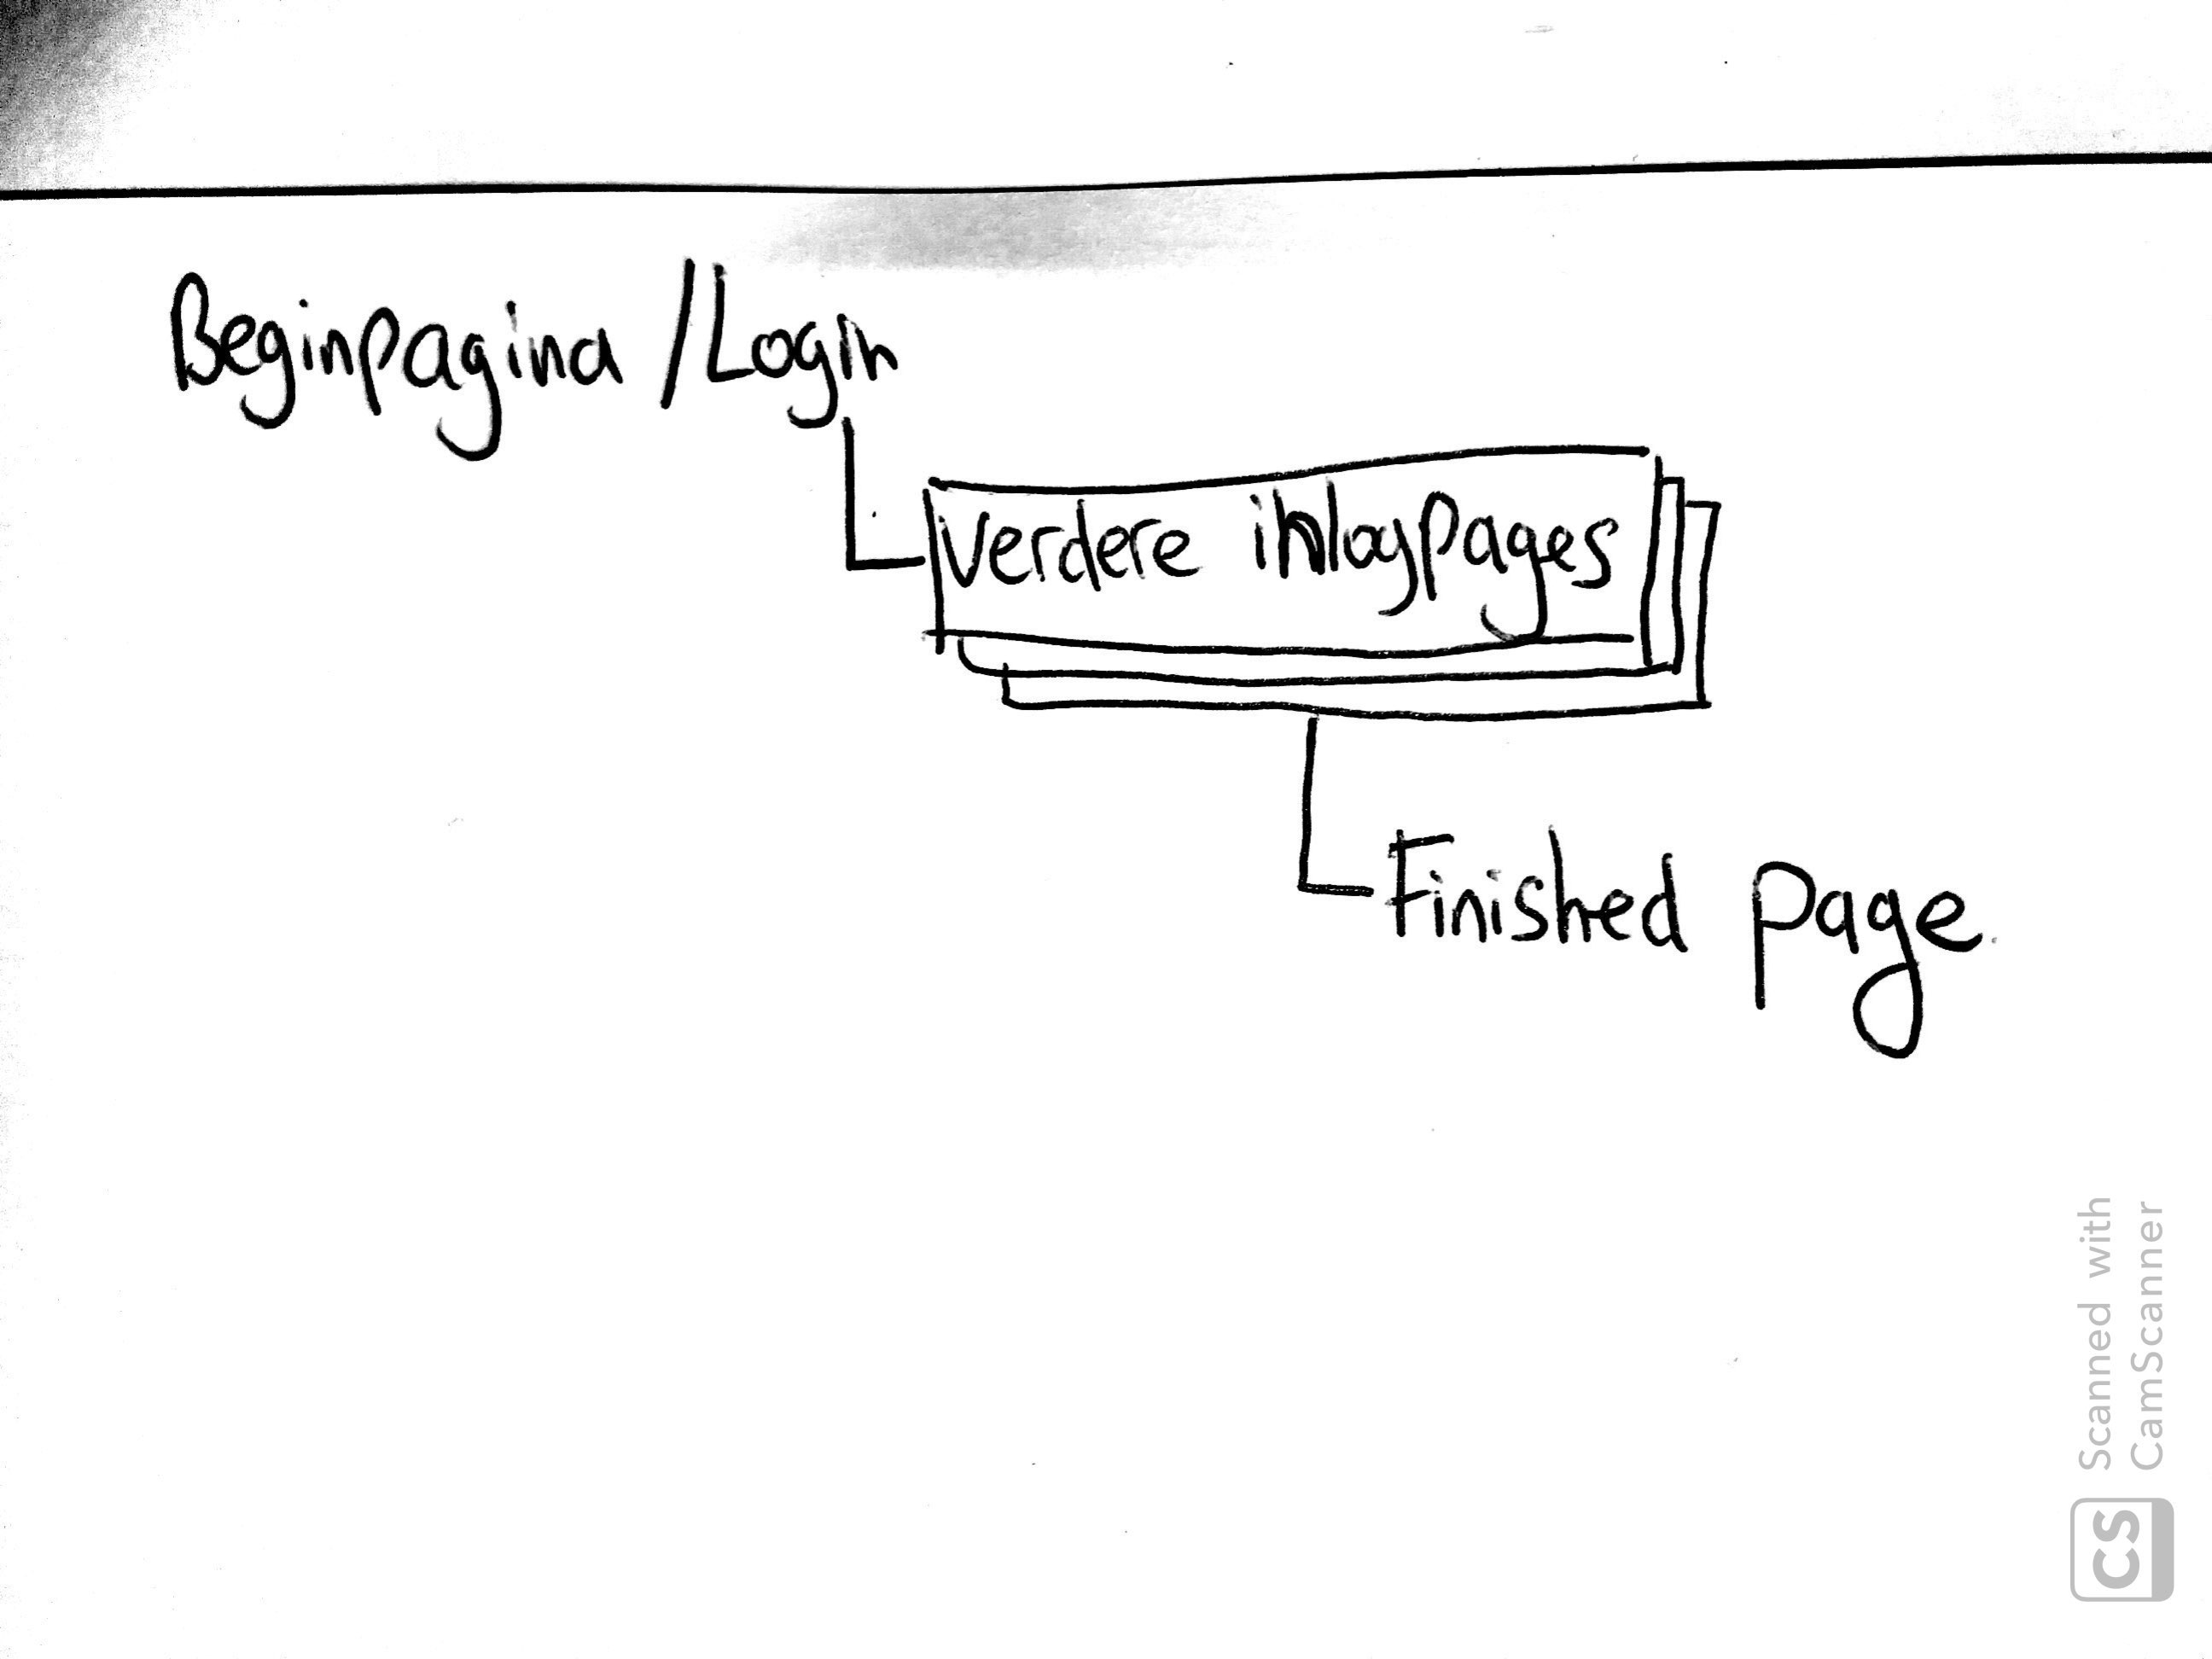 Beginpagina / Login
Verdere inlogpages
Finished page.
Scanned with
CamScanner
CS